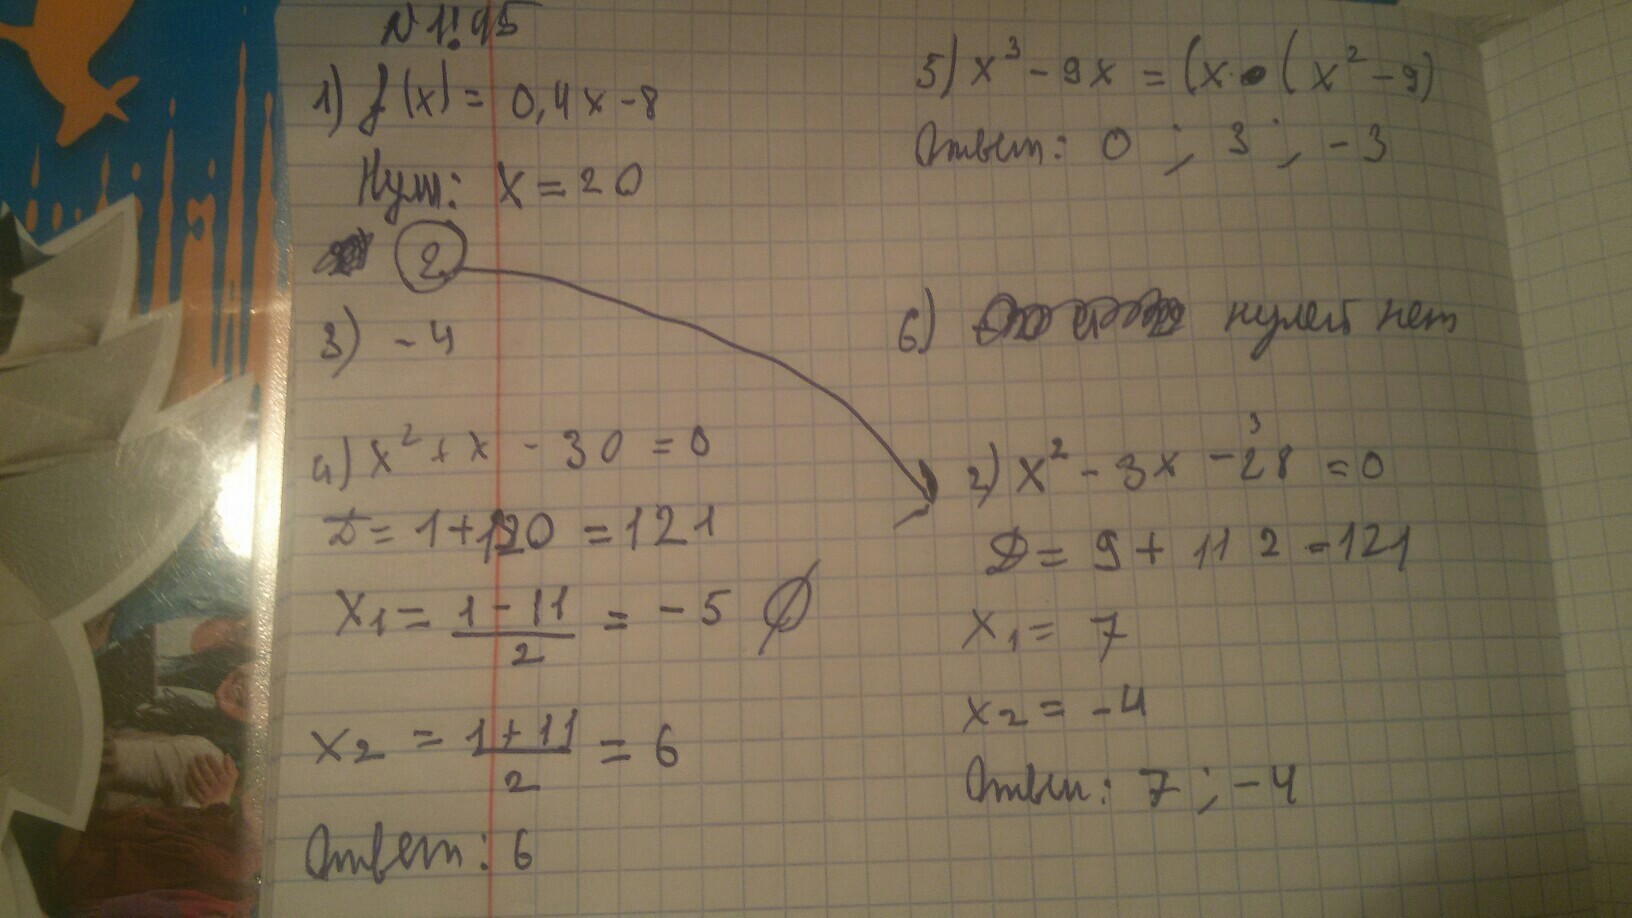 N 1.95
1) f(x) = 0,4x-8
Нули: x = 20
2
3) -4
4) x² + x - 30 = 0
D = 1+120 = 121
x1 = 1-11/2 = -5 ∅
x2 = 1+11/2 = 6
Ответ: 6
5) x³ - 9x = (x·(x²-9)
Ответ: 0 ; 3 ; -3
6) нулей нет
2) x² - 3x - 28 = 0
D = 9 + 112 = 121
x1 = 7
x2 = -4
Ответ: 7 ; -4